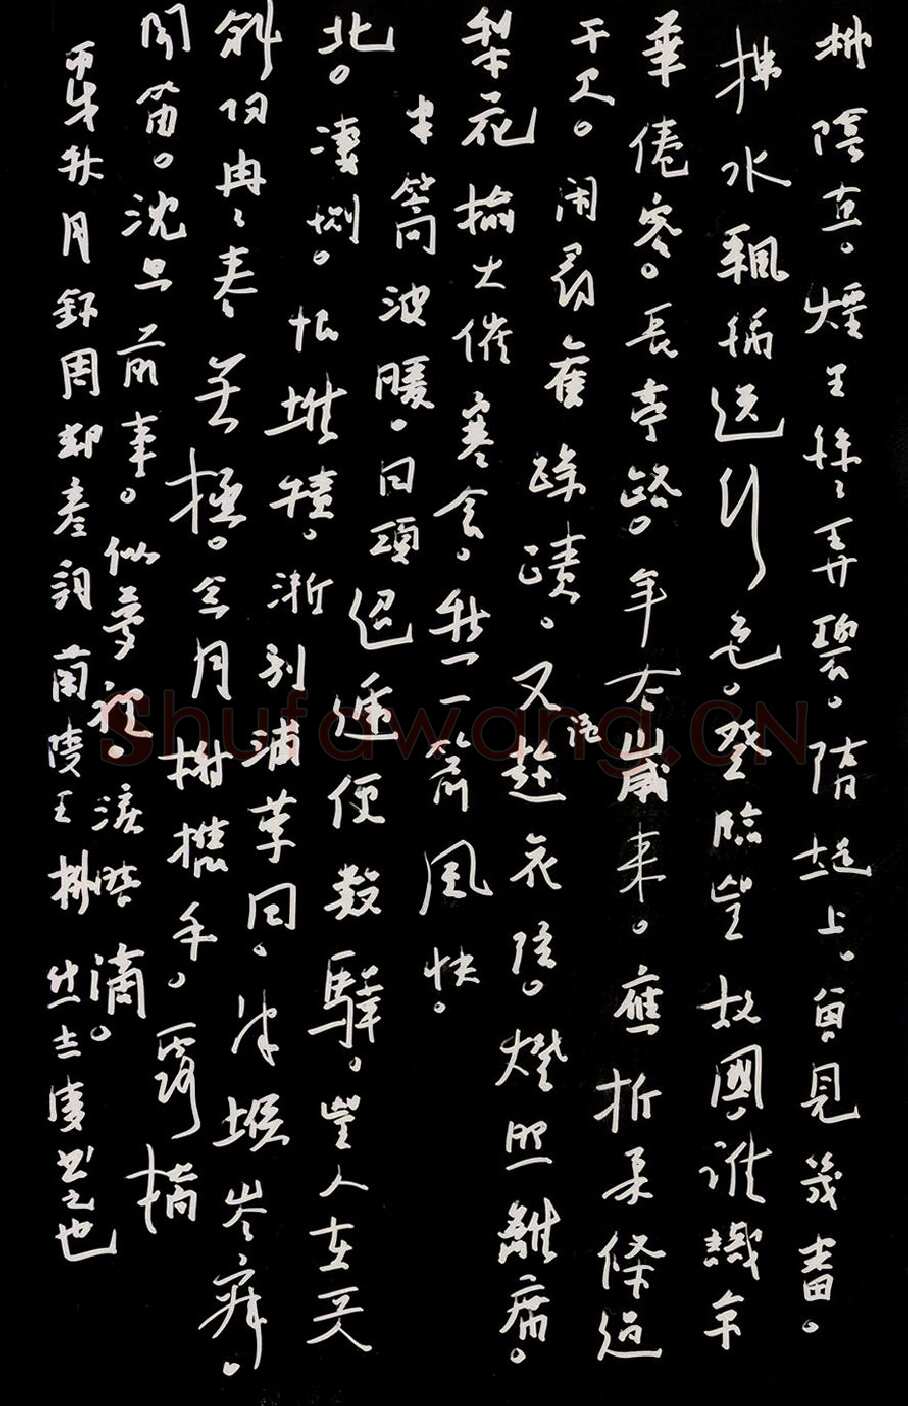 柳陰直。煙里絲絲弄碧。隋堤上。曾見幾番。
拂水飄綿送行色。登臨望故國。誰識京
華倦客。長亭路。年去歲來。應折柔條過
千尺。閑尋舊蹤跡。又趁酒哀弦。燈照離席。
梨花榆火催寒食。愁一箭風快。
半篙波暖。回頭迢遞便數驛。望人在天
北。淒惻。恨堆積。漸別浦縈回。津堠岑寂。
斜陽冉冉春無極。念月榭攜手。露橋
聞笛。沈思前事。似夢裡。淚暗滴。
秋月錄周邦彥詞蘭陵王柳書之也
Shufawang.CN